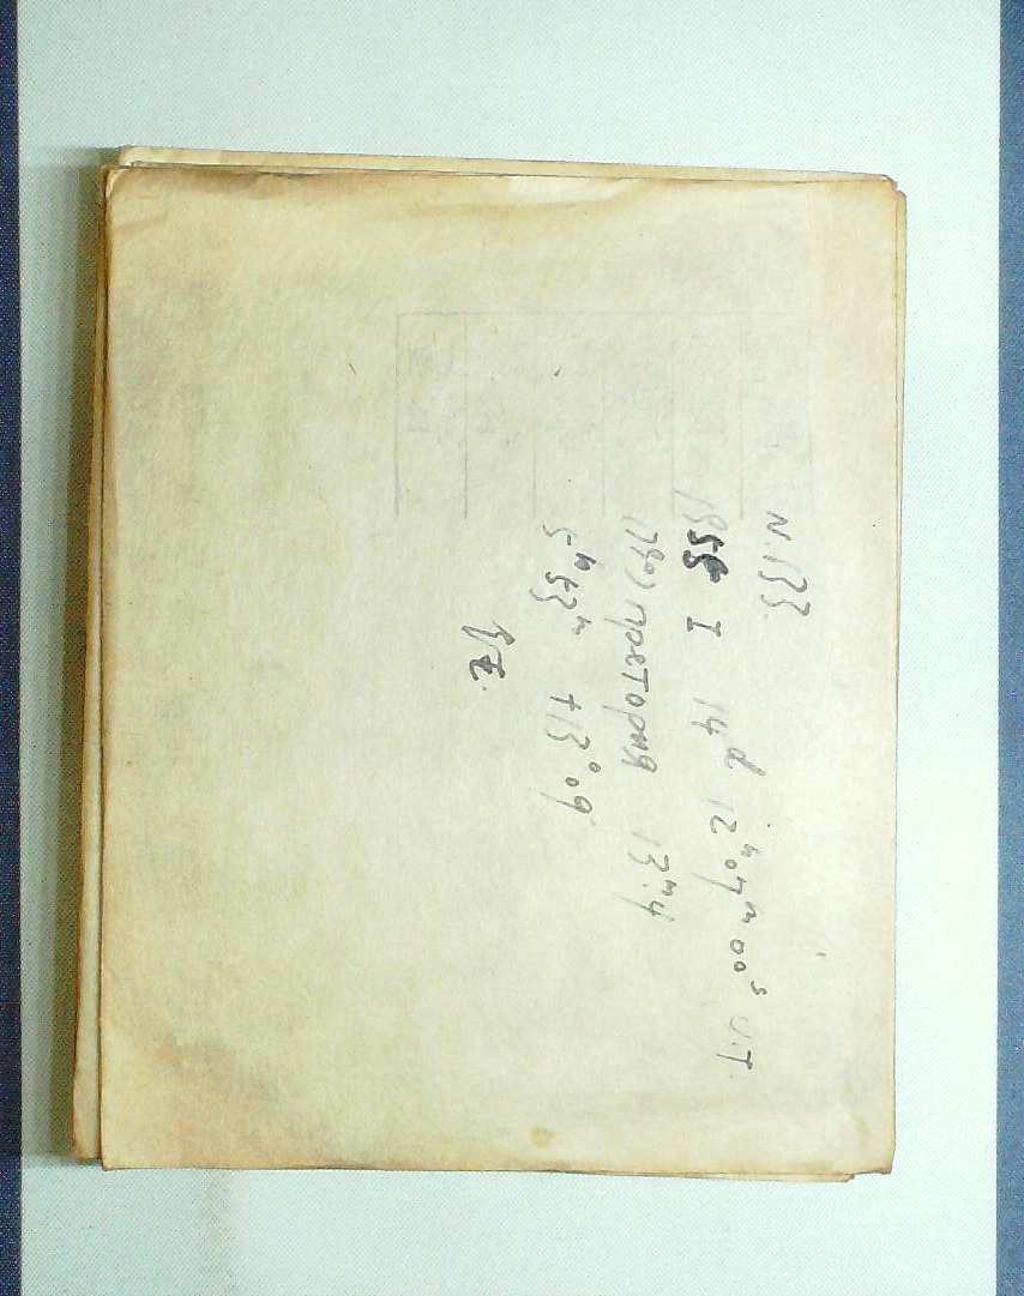 N. 133.
1955 I 14ᵈ 12ʰ07ᵐ00ˢ U.T.
(790) Pretoria 13ᵐ.4
5ʰ53ᵐ +13°09'